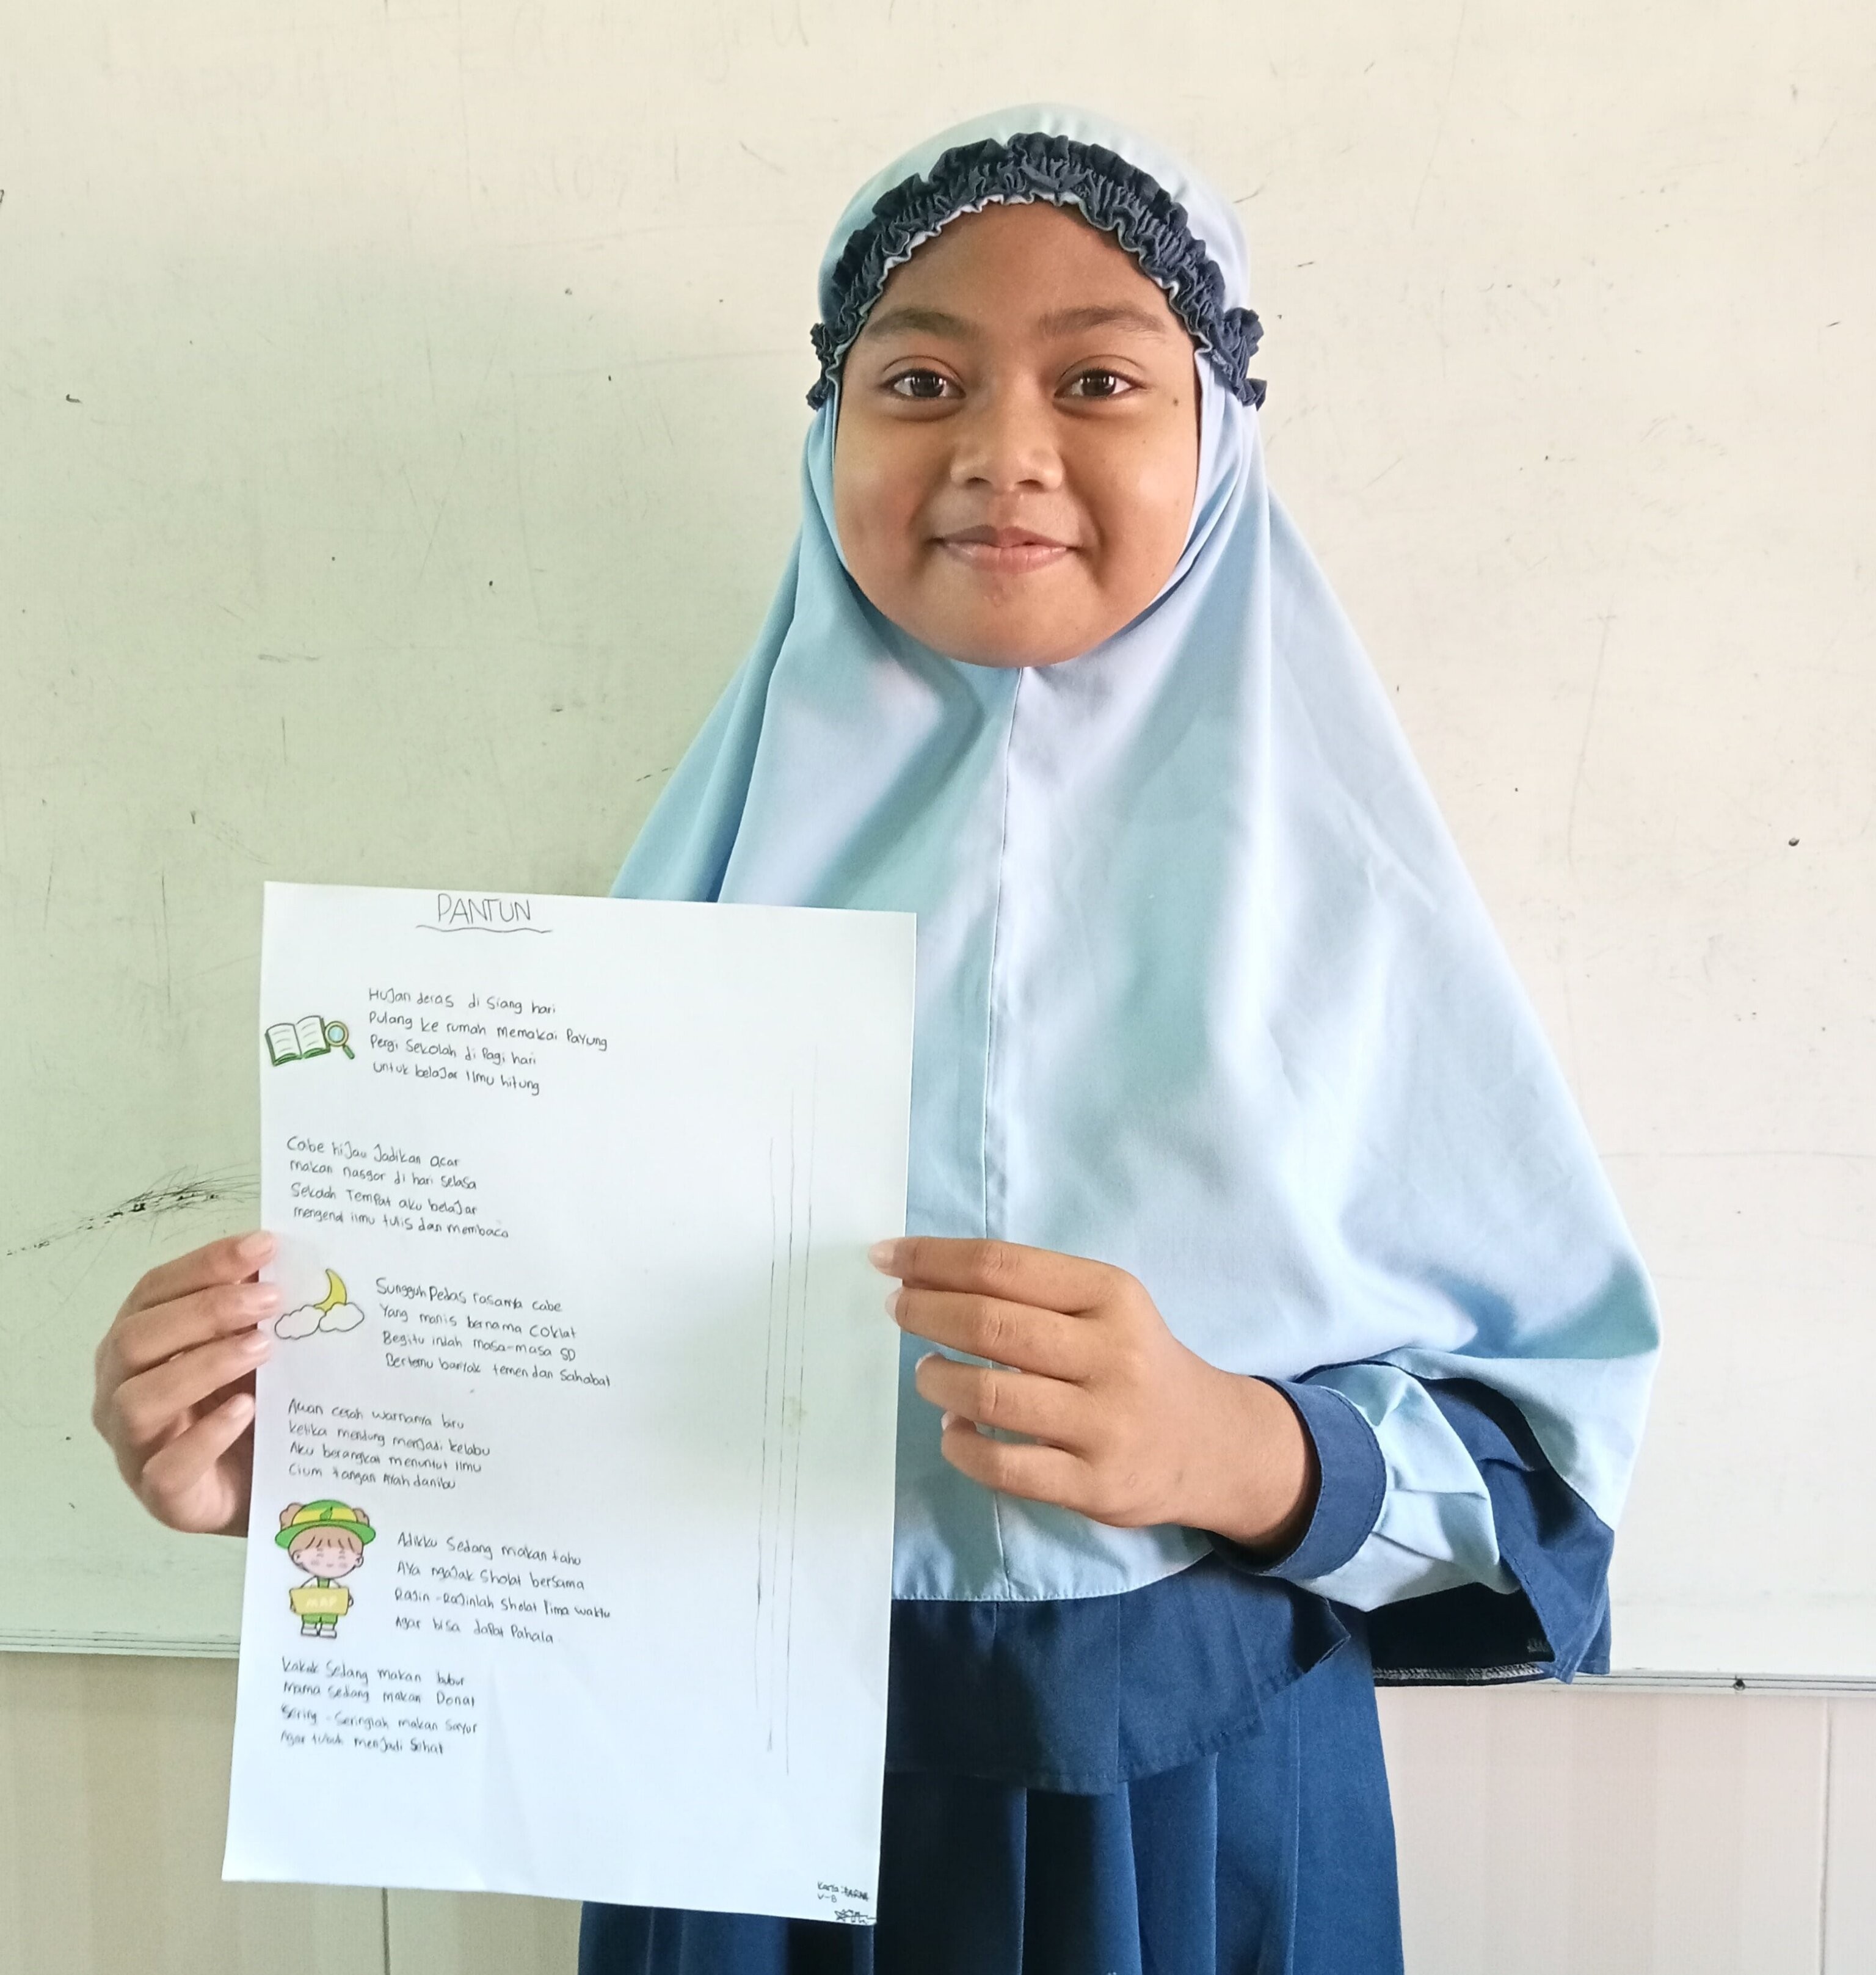 PANTUN
Hujan deras di siang hari
Pulang ke rumah memakai Payung
Pergi Sekolah di Pagi hari
untuk belajar ilmu hitung
Cabe hijau Jadikan acar
makan nasgor di hari selasa
Sekolah Tempat aku belajar
mengenal ilmu tulis dan membaca
Sungguh Pedas rasanya cabe
Yang manis bernama Coklat
Begitu indah masa-masa SD
Bertemu banyak temen dan Sahabat
Awan cerah warnanya biru
ketika mendung menjadi kelabu
Aku berangkat menuntut ilmu
Cium tangan Ayah dan ibu
Adikku Sedang makan tahu
AYa ngajak Sholat bersama
Rajin-Rajinlah Sholat lima waktu
Agar bisa dapat Pahala
MAP
Kakak Sedang makan bubur
Mama sedang makan Donat
Sering-Seringlah makan Sayur
Agar tubuh menjadi Sehat
Karya:
V-B